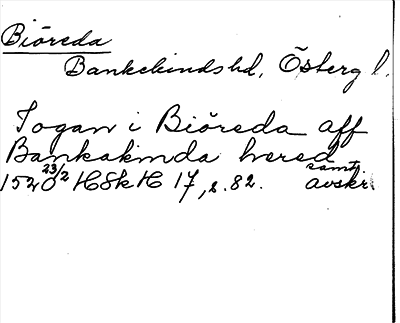 Biöreda
Bankekinds hd, Östergl.
Togan i Biöreda aff
Bankakinda hered
1520 23/2 HSkH 17, s. 82. samt. avskr.